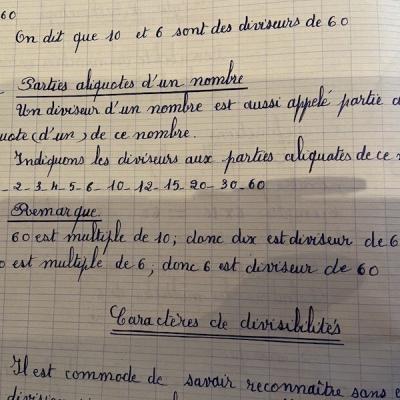 60
On dit que 10 et 6 sont des diviseurs de 60
Parties aliquotes d'un nombre
Un diviseur d'un nombre est aussi appelé partie a
uote (d'un) de ce nombre.
Indiquons les diviseurs aux parties aliquates de ce
_ 2 _ 3 _ 4 _ 5 _ 6 _ 10 _ 12 _ 15 _ 20 _ 30 _ 60
Remarque
60 est multiple de 10; donc dix est diviseur de 6
0 est multiple de 6, donc 6 est diviseur de 60
Caractères de divisibilités
Il est commode de savoir reconnaître sans e
division